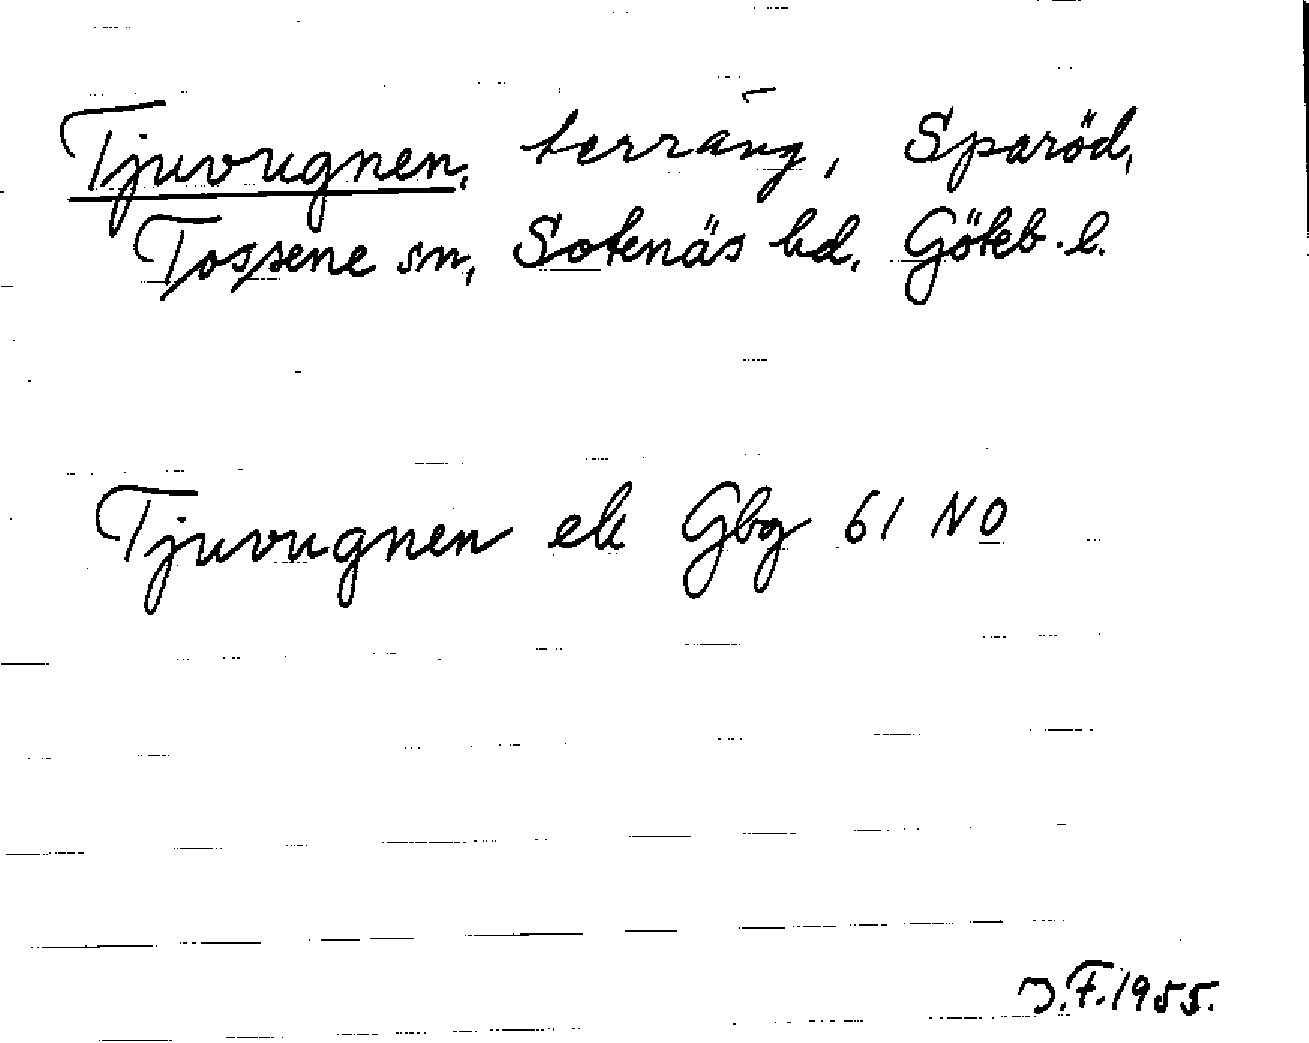 Tjuvugnen, terräng, Sparöd,
Tossene sn, Sotenäs hd, Göteb. l.
Tjuvugnen ek Gbg 61 NO
J.F. 1955.